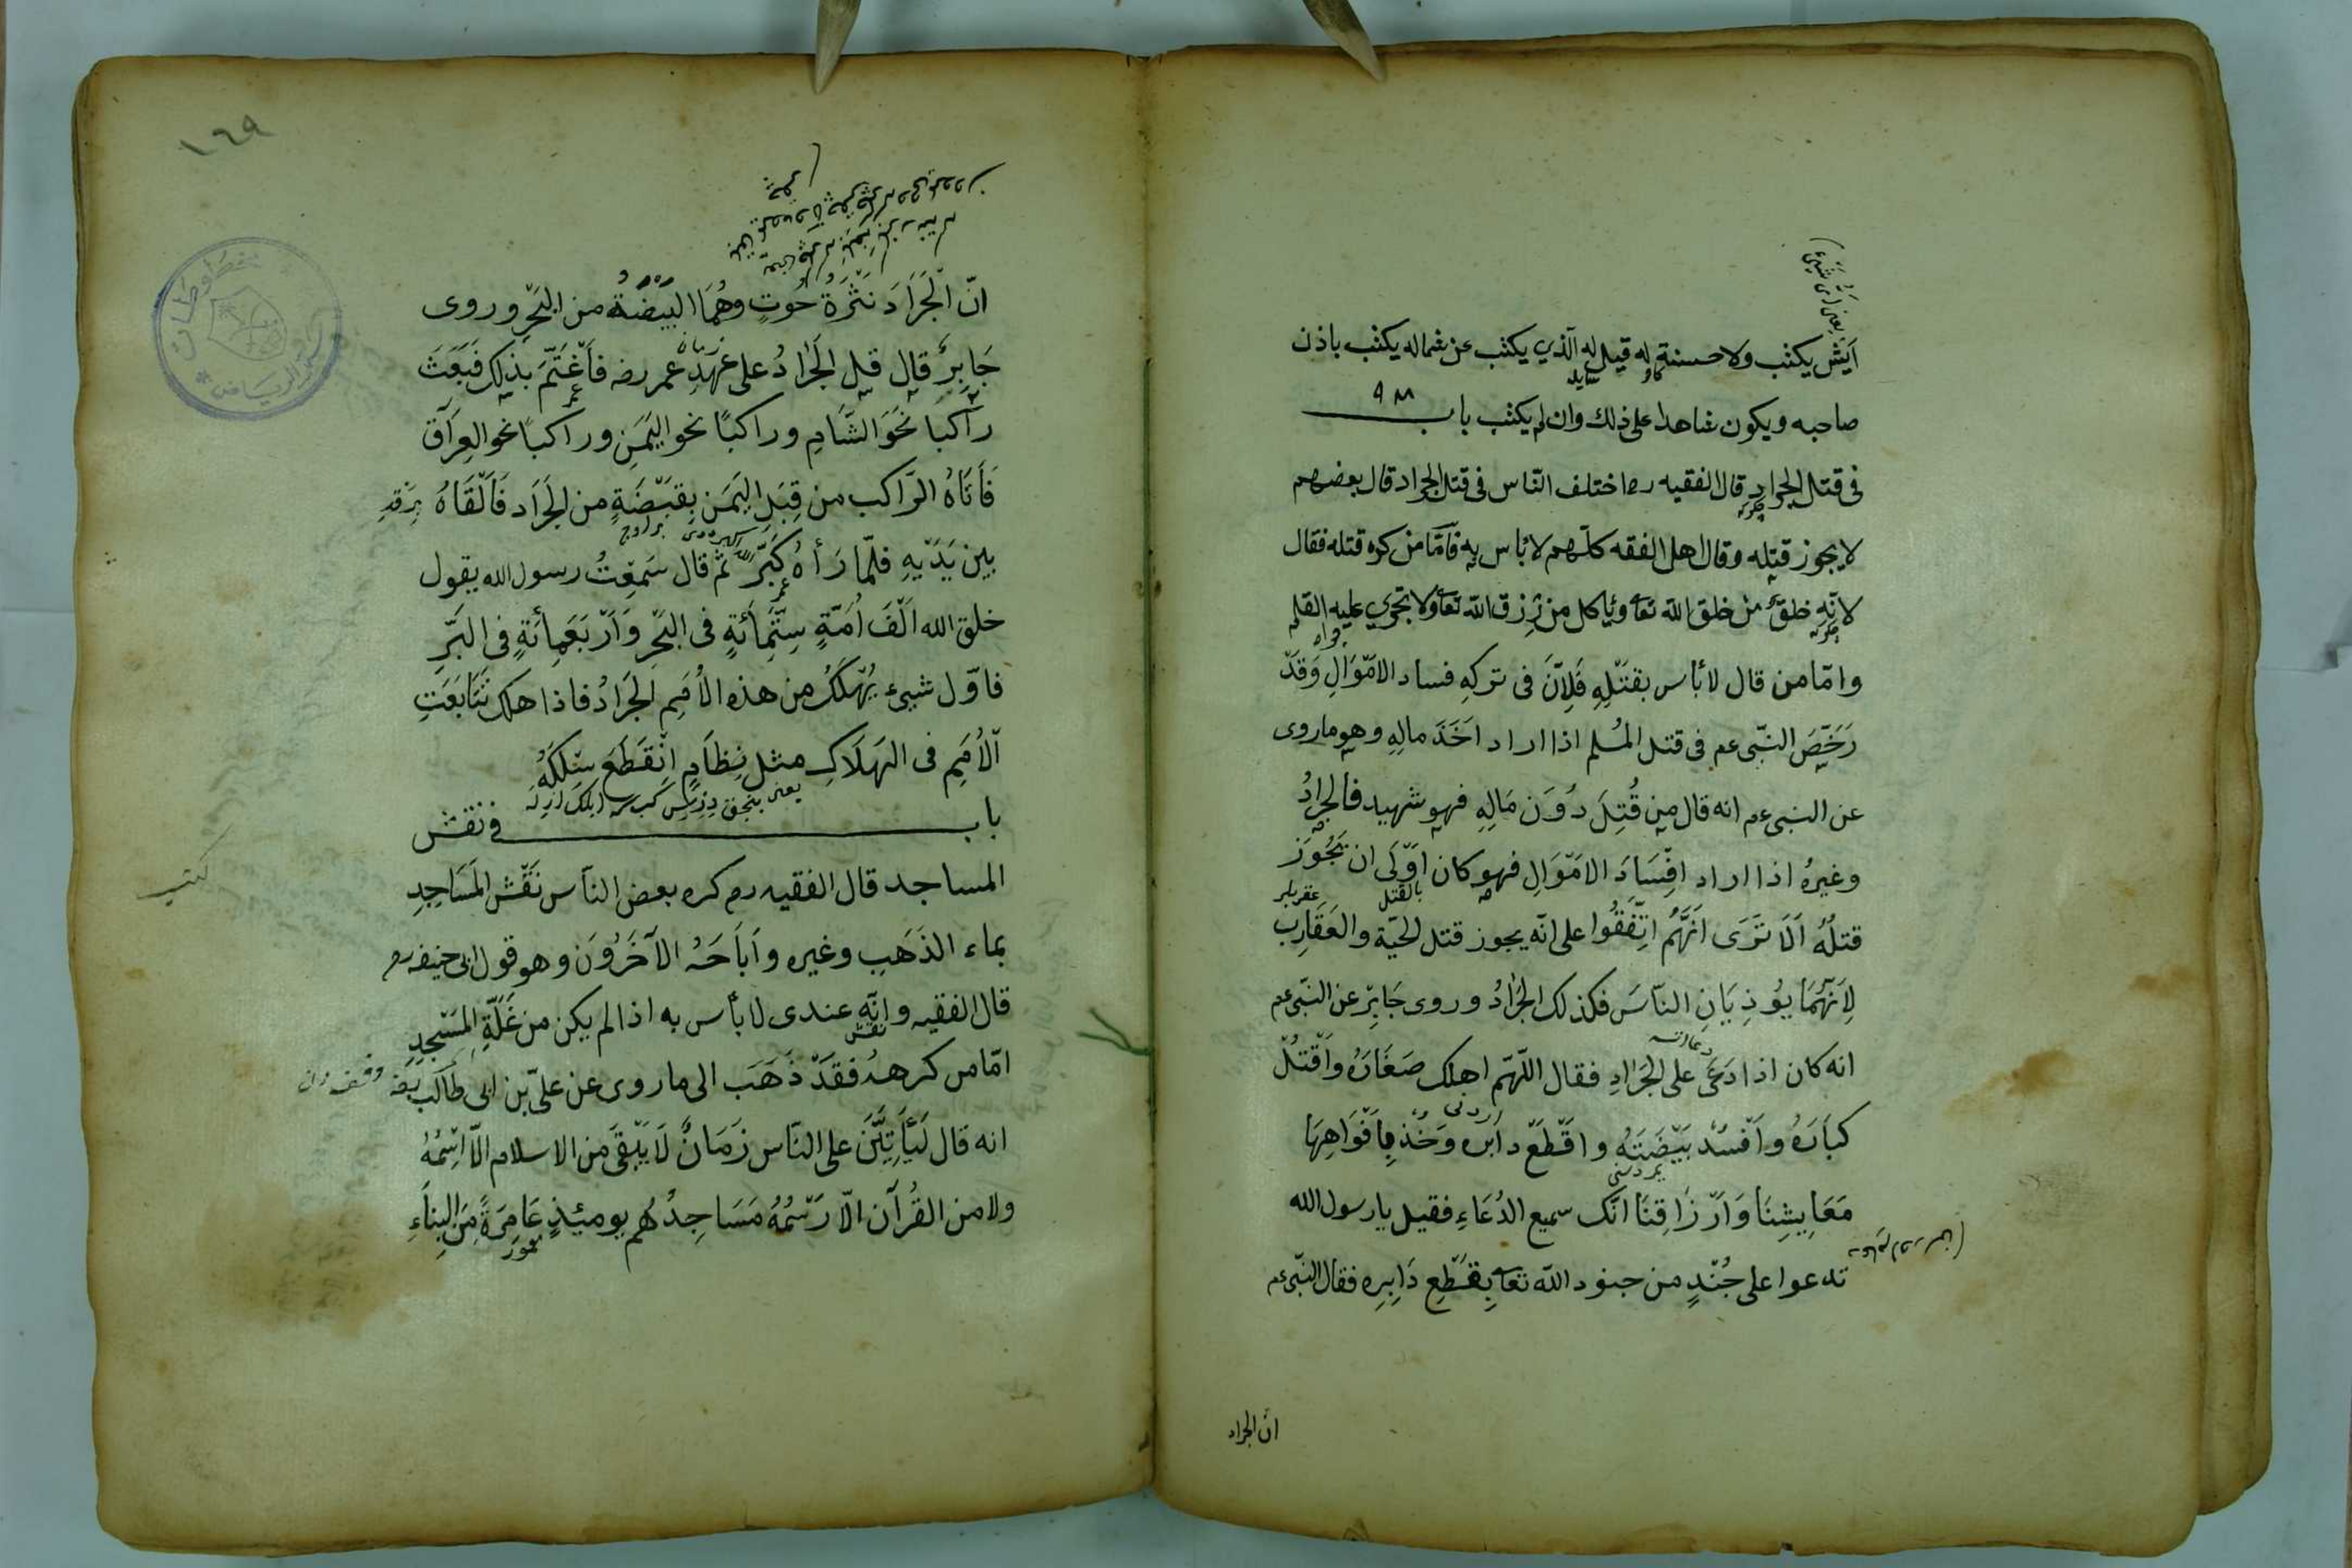 ايش يكتب ولا حسنة له قيل له الذي يكتب عن شماله يكتب باذن
صاحبه ويكون شاهدا على ذلك وان لم يكتب باب ٩٨
فى قتل الجراد قال الفقيه رح اختلف النّاس فى قتل الجراد قال بعضهم
لا يجوز قتله وقال اهل الفقه كلّهم لا بأس به فأمّا من كره قتله فقال
لانّه خلقٌ من خلق اللّه تعا ويأكل من رزق اللّه تعا ولا تجرى عليه القلم
وامّا من قال لا بأس بقَتْلِهِ فَلِاَنَّ فى تركِهِ فساد الامْوَالِ وَقَدْ
رَخَّصَ النّبى عم فى قتل المُسلم اذا اراد اَخَذَ مالِهِ وهو ما روى
عن النبى عم انه قال من قُتِلَ دُوَنَ مَالِهِ فهو شهيد فالجرادُ
وغيرهُ اذا اراد اِفْسَادَ الامْوَالِ فهو كان اَوْلَى ان يَجُوزَ
بالقتل
قتلُهُ اَلَا تَرَى اَنَّهُم اتّفَقُوا على انّه يجوز قتل الحيّة والعَقَارِب
لِاَنّهُمَا يؤذِيَانِ النّاسَ فكذلك الجَرادُ وروى جَابِرٌ عن النّبى عم
انه كان اذا دَعَى على الجَرادِ فقال اللّهمّ اهلك صَغَارَهُ واقْتُلْ
كبَارَهُ واَفْسُدْ بَيْضَتَهُ واقْطَعْ دابره وَخُذْ بِاَفْوَاهِهَا
مَعَايِشِنَا وَاَرْزَاقِنَا انّك سميع الدُعَاءِ فقيل يا رسول الله
تدعوا على جُنْدٍ من جنود اللّه تعا بِقَطْعِ دَابِرِه فقال النّبى عم
انّ الجراد
١٦٩
انّ الْجَرَادَ نَثْرَةُ حُوتٍ وهُمَا البَيْضَةُ من البَحْرِ وروى
جَابِرٌ قال قيل الجَرَادُ على عَهْدِ عمر رضه فَاَغْتَمَّ بذلك فَبَعَثَ
راكبا نَحْوَ الشَّامِ وراكبًا نحو اليَمَنِ وراكبًا نحو العِرَاقَ
فَأَتَاهُ الرّاكب من قِبَلِ اليَمَنِ بِقَبْضَةٍ من الجَرَادِ فَاَلْقَاهُ
بين يَدَيْهِ فلمّا رَأهُ كَبَّرَ ثمّ قال سَمِعْتُ رسول الله يقول
خلق الله اَلْفَ اُمّةٍ سِتّمِائَةٍ فى البَحْرِ وَاَرْبَعَمِأَئةٍ فى البَرّ
فاوّل شيىء يُهْلَكُ من هذه الاُمَمِ الجَرَادُ فاذا هلك تَتَابَعَتِ
الاُمَمِ فى الهَلَاكِ مثل نِظَامٍ اِنْقَطَعَ سِلْكُهُ
باب فى نقش
المساجد قال الفقيه رح كره بعض النّاس نَقْشَ المَسَاجِدِ
بماء الذَهَبِ وغيره واَبَاحَهُ الآخَرُونَ وهو قول ابى حنيفه رح
قال الفقيه وانّه عندى لا بأس به اذا لم يكن من غَلّةِ المَسْجِدِ
امّا من كرههُ فقدْ ذَهَب الى ما روى عن علىّ بن ابى طَالب رضه
انه قال لَيَأتِيَّنَ على النّاس زَمَانٌ لَا يَبْقَى من الاسلام الّا اسْمُهُ
ولا من القُرآن الّا رَسْمُهُ مَسَاجِدُهُم يومئذٍ عَامِرَةً مِنَ البِنَاءِ